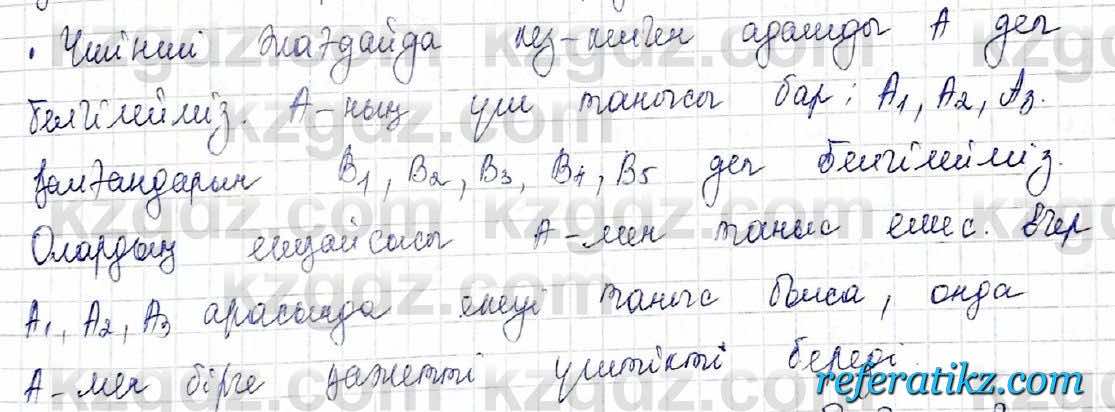 • Үшінші жағдайда кез-келген адамды А деп
белгілейміз. А-ның үш танысы бар: А1, А2, А3.
Қалғандарын В1, В2, В3, В4, В5 деп белгілейміз.
Олардың ешқайсысы А-мен таныс емес. Егер
А1, А2, А3 арасында екеуі таныс болса, онда
А-мен бірге қажетті үштікті береді
kzgdz.com
referatikz.com